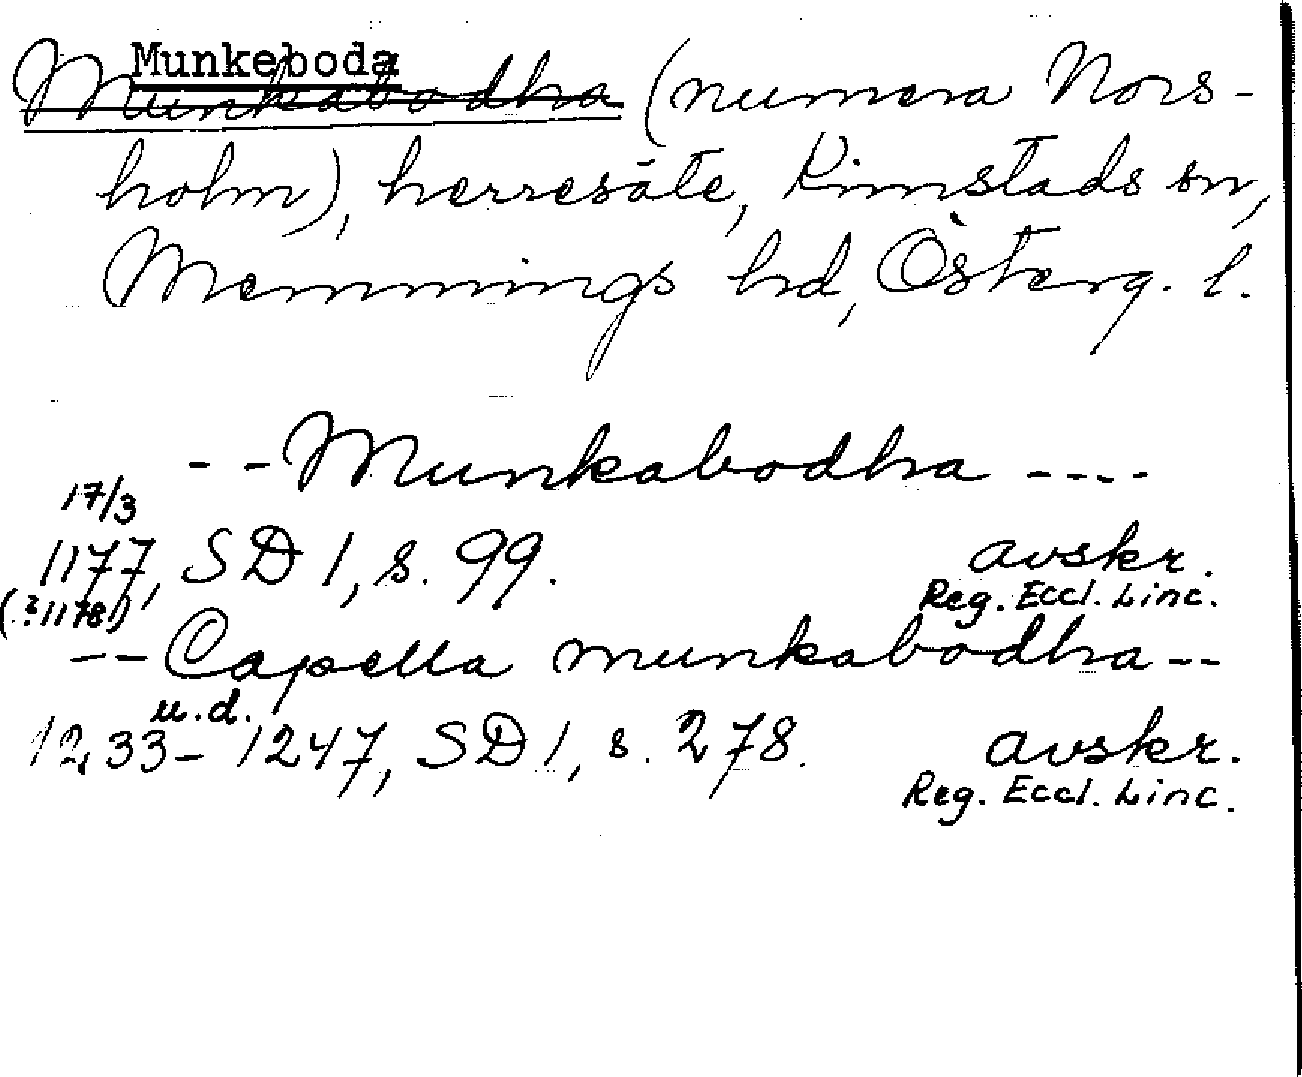 Munkeboda
Munkabodha (numera Nors-
holm), herresäte, Kimstads sn,
Memmings hd, Österg. l.
- - Munkabodha - - - -
17/3
1177, SD 1, s. 99. avskr.
(?1178!) Reg. Eccl. Linc.
- - Capella munkabodha - -
u.d.
1233 - 1247, SD 1, s. 278. avskr.
Reg. Eccl. Linc.